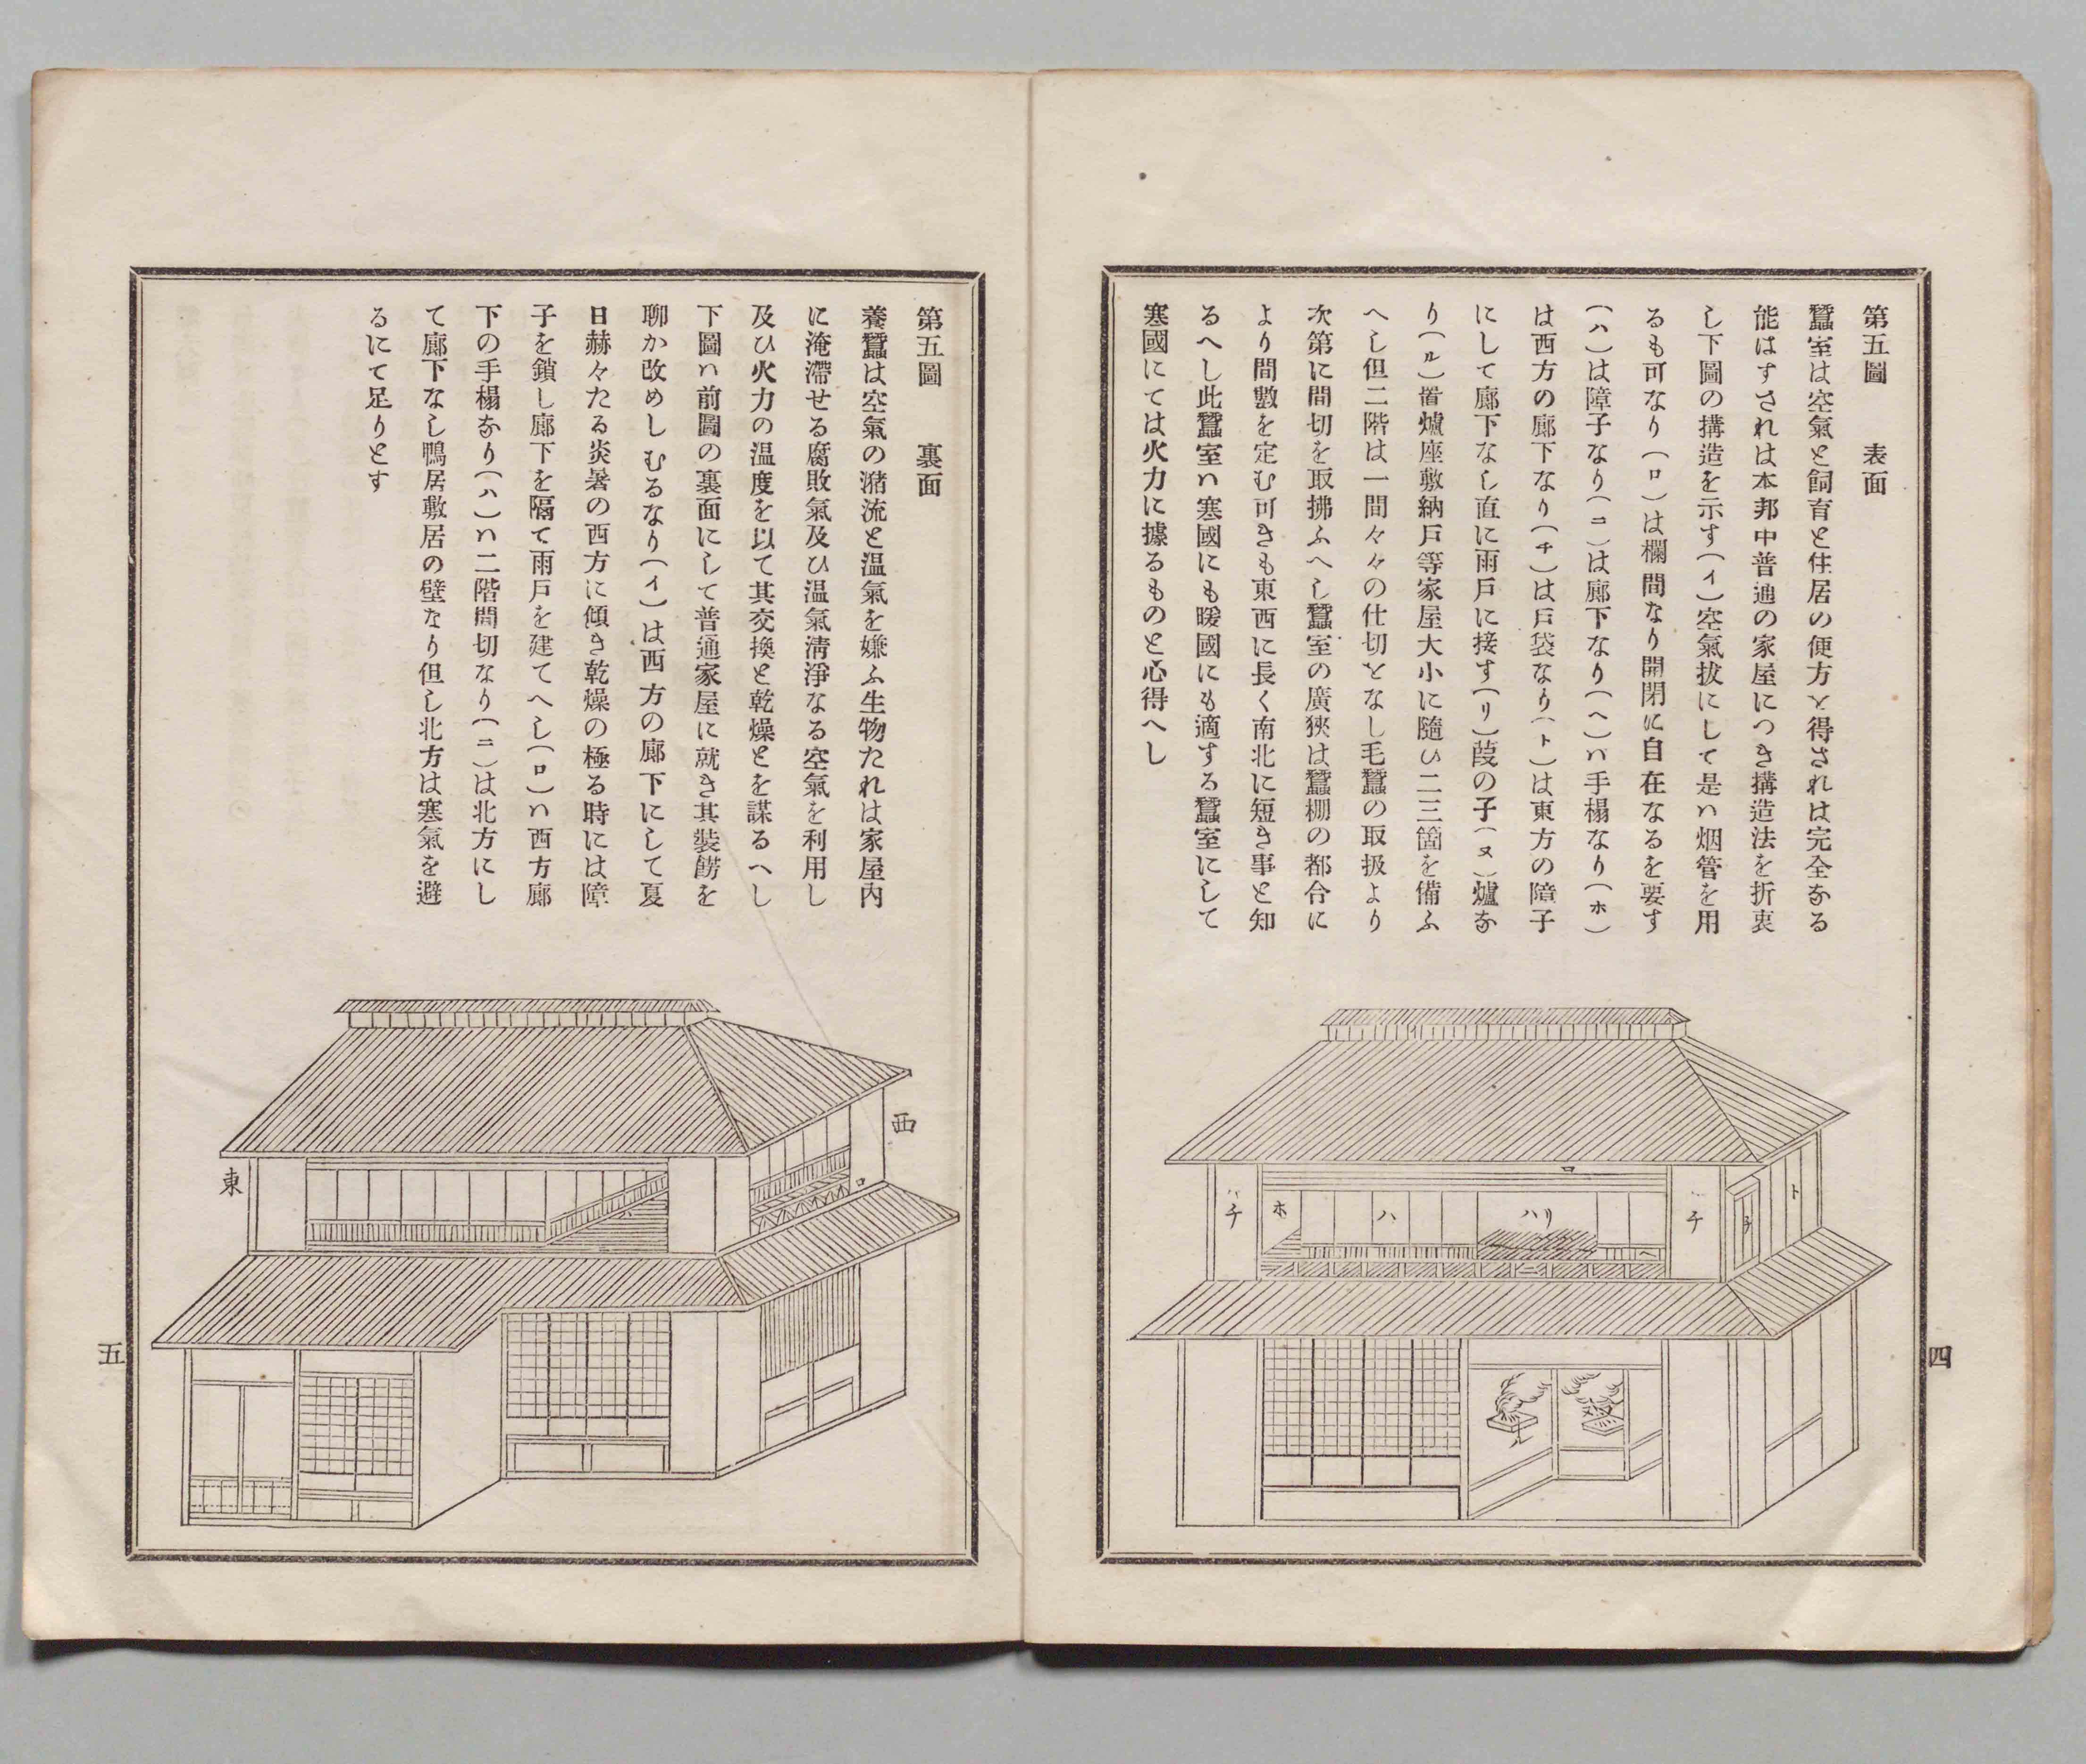 第五圖　表面
蠶室は空氣と飼育と住居の便方を得されは完全なる
能はすされは本邦中普通の家屋につき搆造法を折衷
し下圖の搆造を示す(イ)空氣拔にして是ハ烟管を用
るも可なり(ロ)は欄間なり開閉に自在なるを要す
(ハ)は障子なり(ニ)は廊下なり(ヘ)ハ手榻なり(ホ)
は西方の廊下なり(チ)は戸袋なり(ト)は東方の障子
にして廊下なし直に雨戸に接す(リ)葭の子(ヌ)爐な
り(ル)置爐座敷納戸等家屋大小に隨ひ二三箇を備ふ
へし但二階は一間々々の仕切となし毛蠶の取扱より
次第に間切を取拂ふへし蠶室の廣狹は蠶棚の都合に
より間數を定む可きも東西に長く南北に短き事と知
るへし此蠶室ハ寒國にも暖國にも適する蠶室にして
寒國にては火力に據るものと心得へし
ロ
チ
ホ
ハ
ハリ
チ
チ
ト
ヘ
ニ
四
第五圖　裏面
養蠶は空氣の潴流と温氣を嫌ふ生物たれは家屋内
に淹滯せる腐敗氣及ひ温氣淸淨なる空氣を利用し
及ひ火力の温度を以て其交換と乾燥とを謀るへし
下圖ハ前圖の裏面にして普通家屋に就き其裝餝を
聊か改めしむるなり(イ)は西方の廊下にして夏
日赫々たる炎暑の西方に傾き乾燥の極る時には障
子を鎖し廊下を隔て雨戸を建てへし(ロ)ハ西方廊
下の手榻なり(ハ)ハ二階間切なり(ニ)は北方にし
て廊下なし鴨居敷居の壁なり但し北方は寒氣を避
るにて足りとす
西
東
ロ
ハ
五